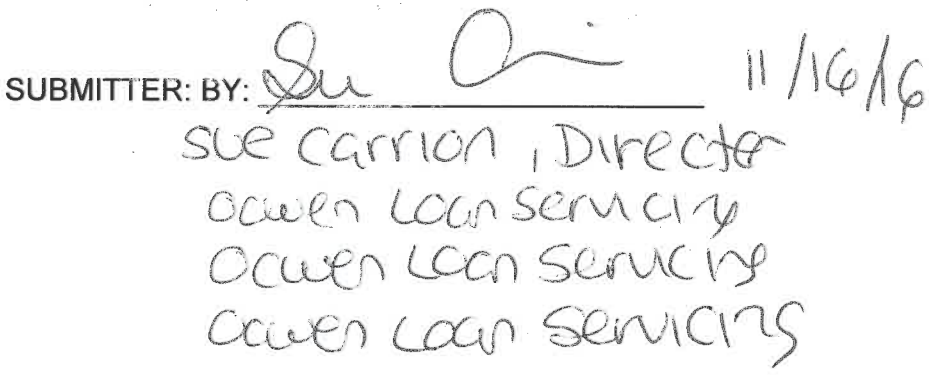 SUBMITTER: BY: Sue 11/16/16
Sue Carrion, Director
Ocwen Loan Servicing
Ocwen Loan Servicing
Ocwen Loan Servicing